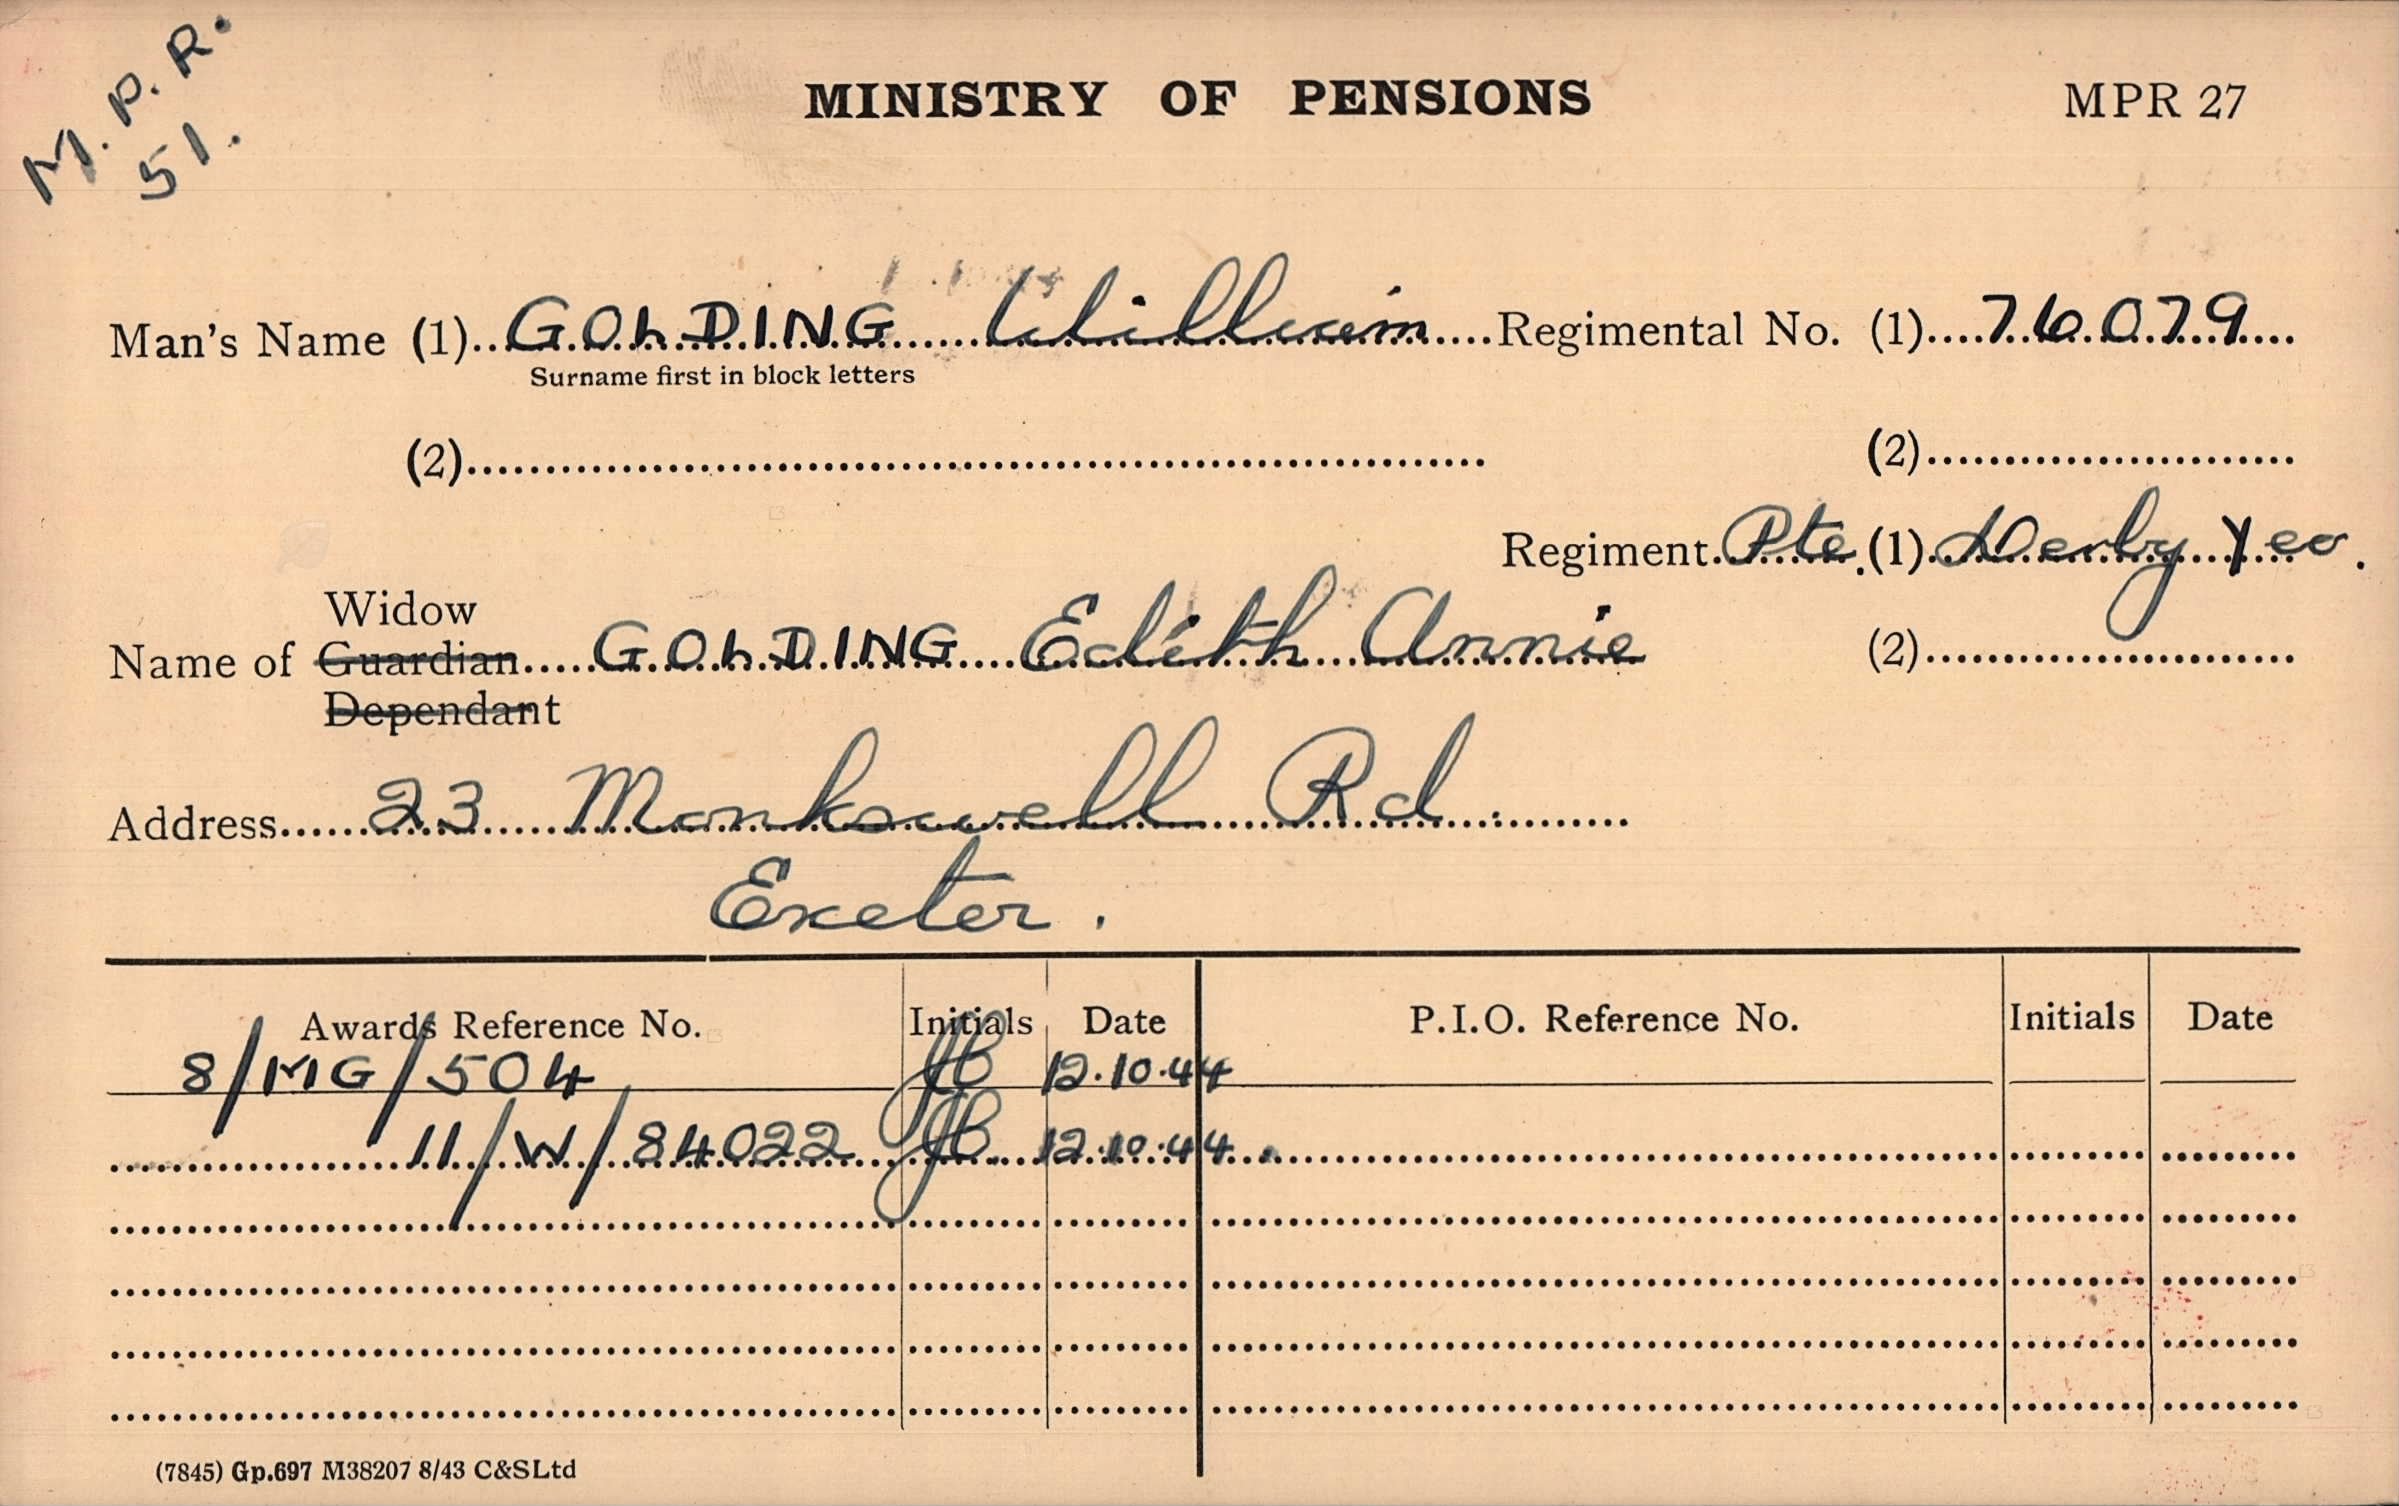 M.P.R.
51.
MINISTRY OF PENSIONS
MPR 27
Man's Name (1) GOLDING William Regimental No. (1) 76079
Surname first in block letters
(2) (2)
Regiment Pte. (1) Derby Yeo.
Widow
Name of Guardian GOLDING Edith Annie (2)
Dependant
Address 23 Monkswell Rd.
Exeter.
Awards Reference No. Initials Date P.I.O. Reference No. Initials Date
8/MG/504 12.10.44
11/W/84022 12.10.44.
(7845) Gp.697 M38207 8/43 C&SLtd